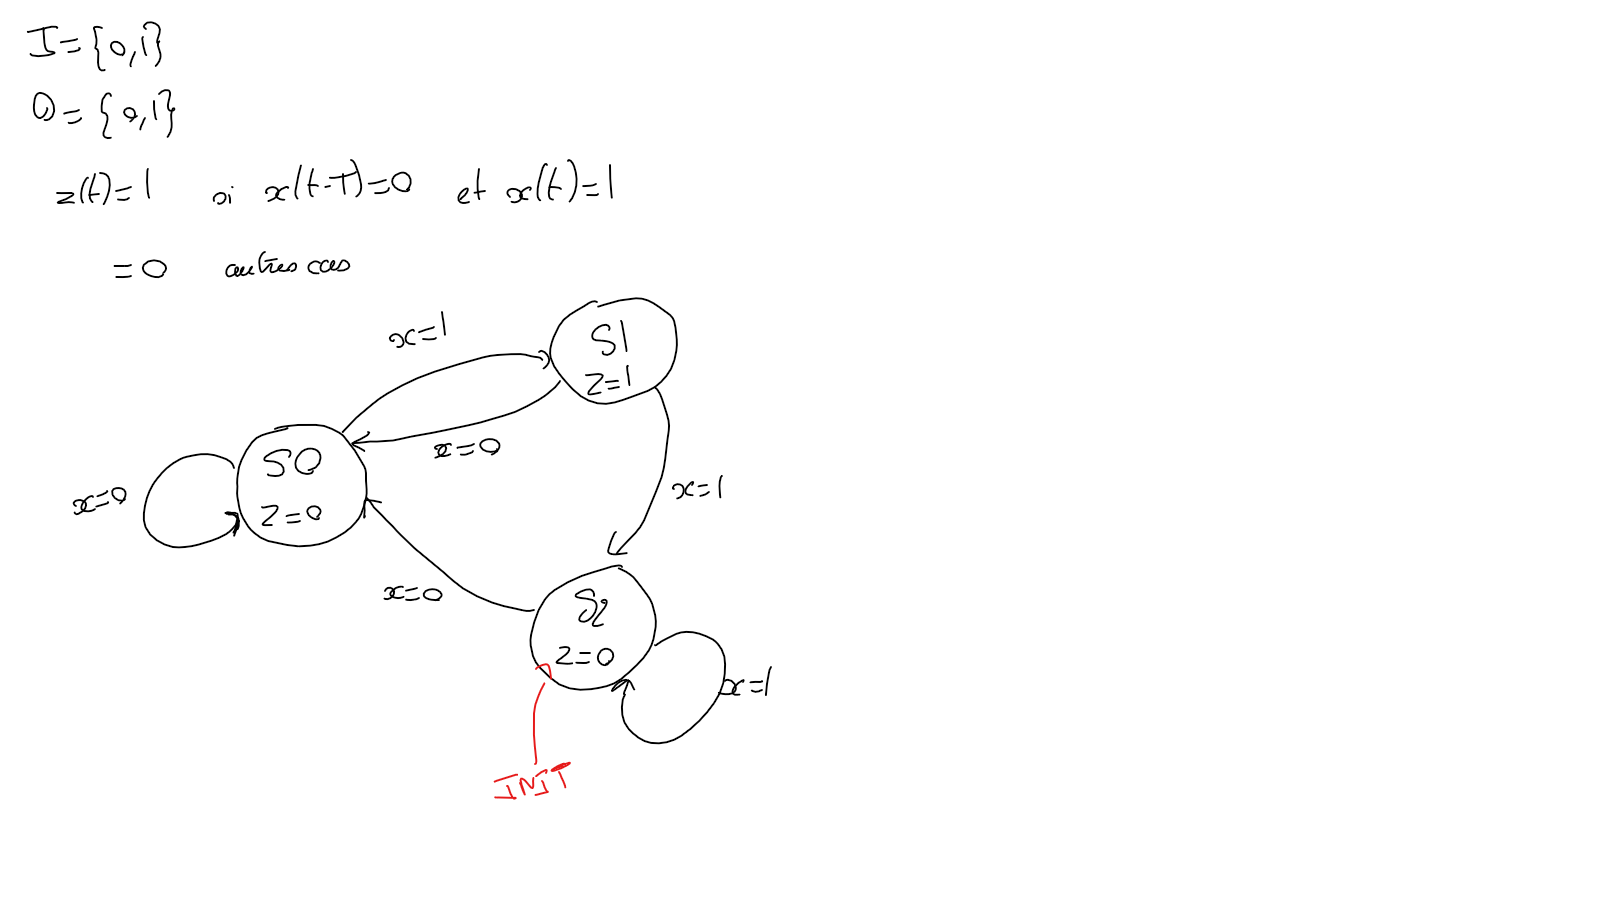 I={0,1}
O={0,1}
z(t)=1 si x(t-T)=0 et x(t)=1
=0 autres cas
x=1
S1
Z=1
x=0
S0
Z=0
x=0
x=1
x=0
S2
Z=0
x=1
INIT